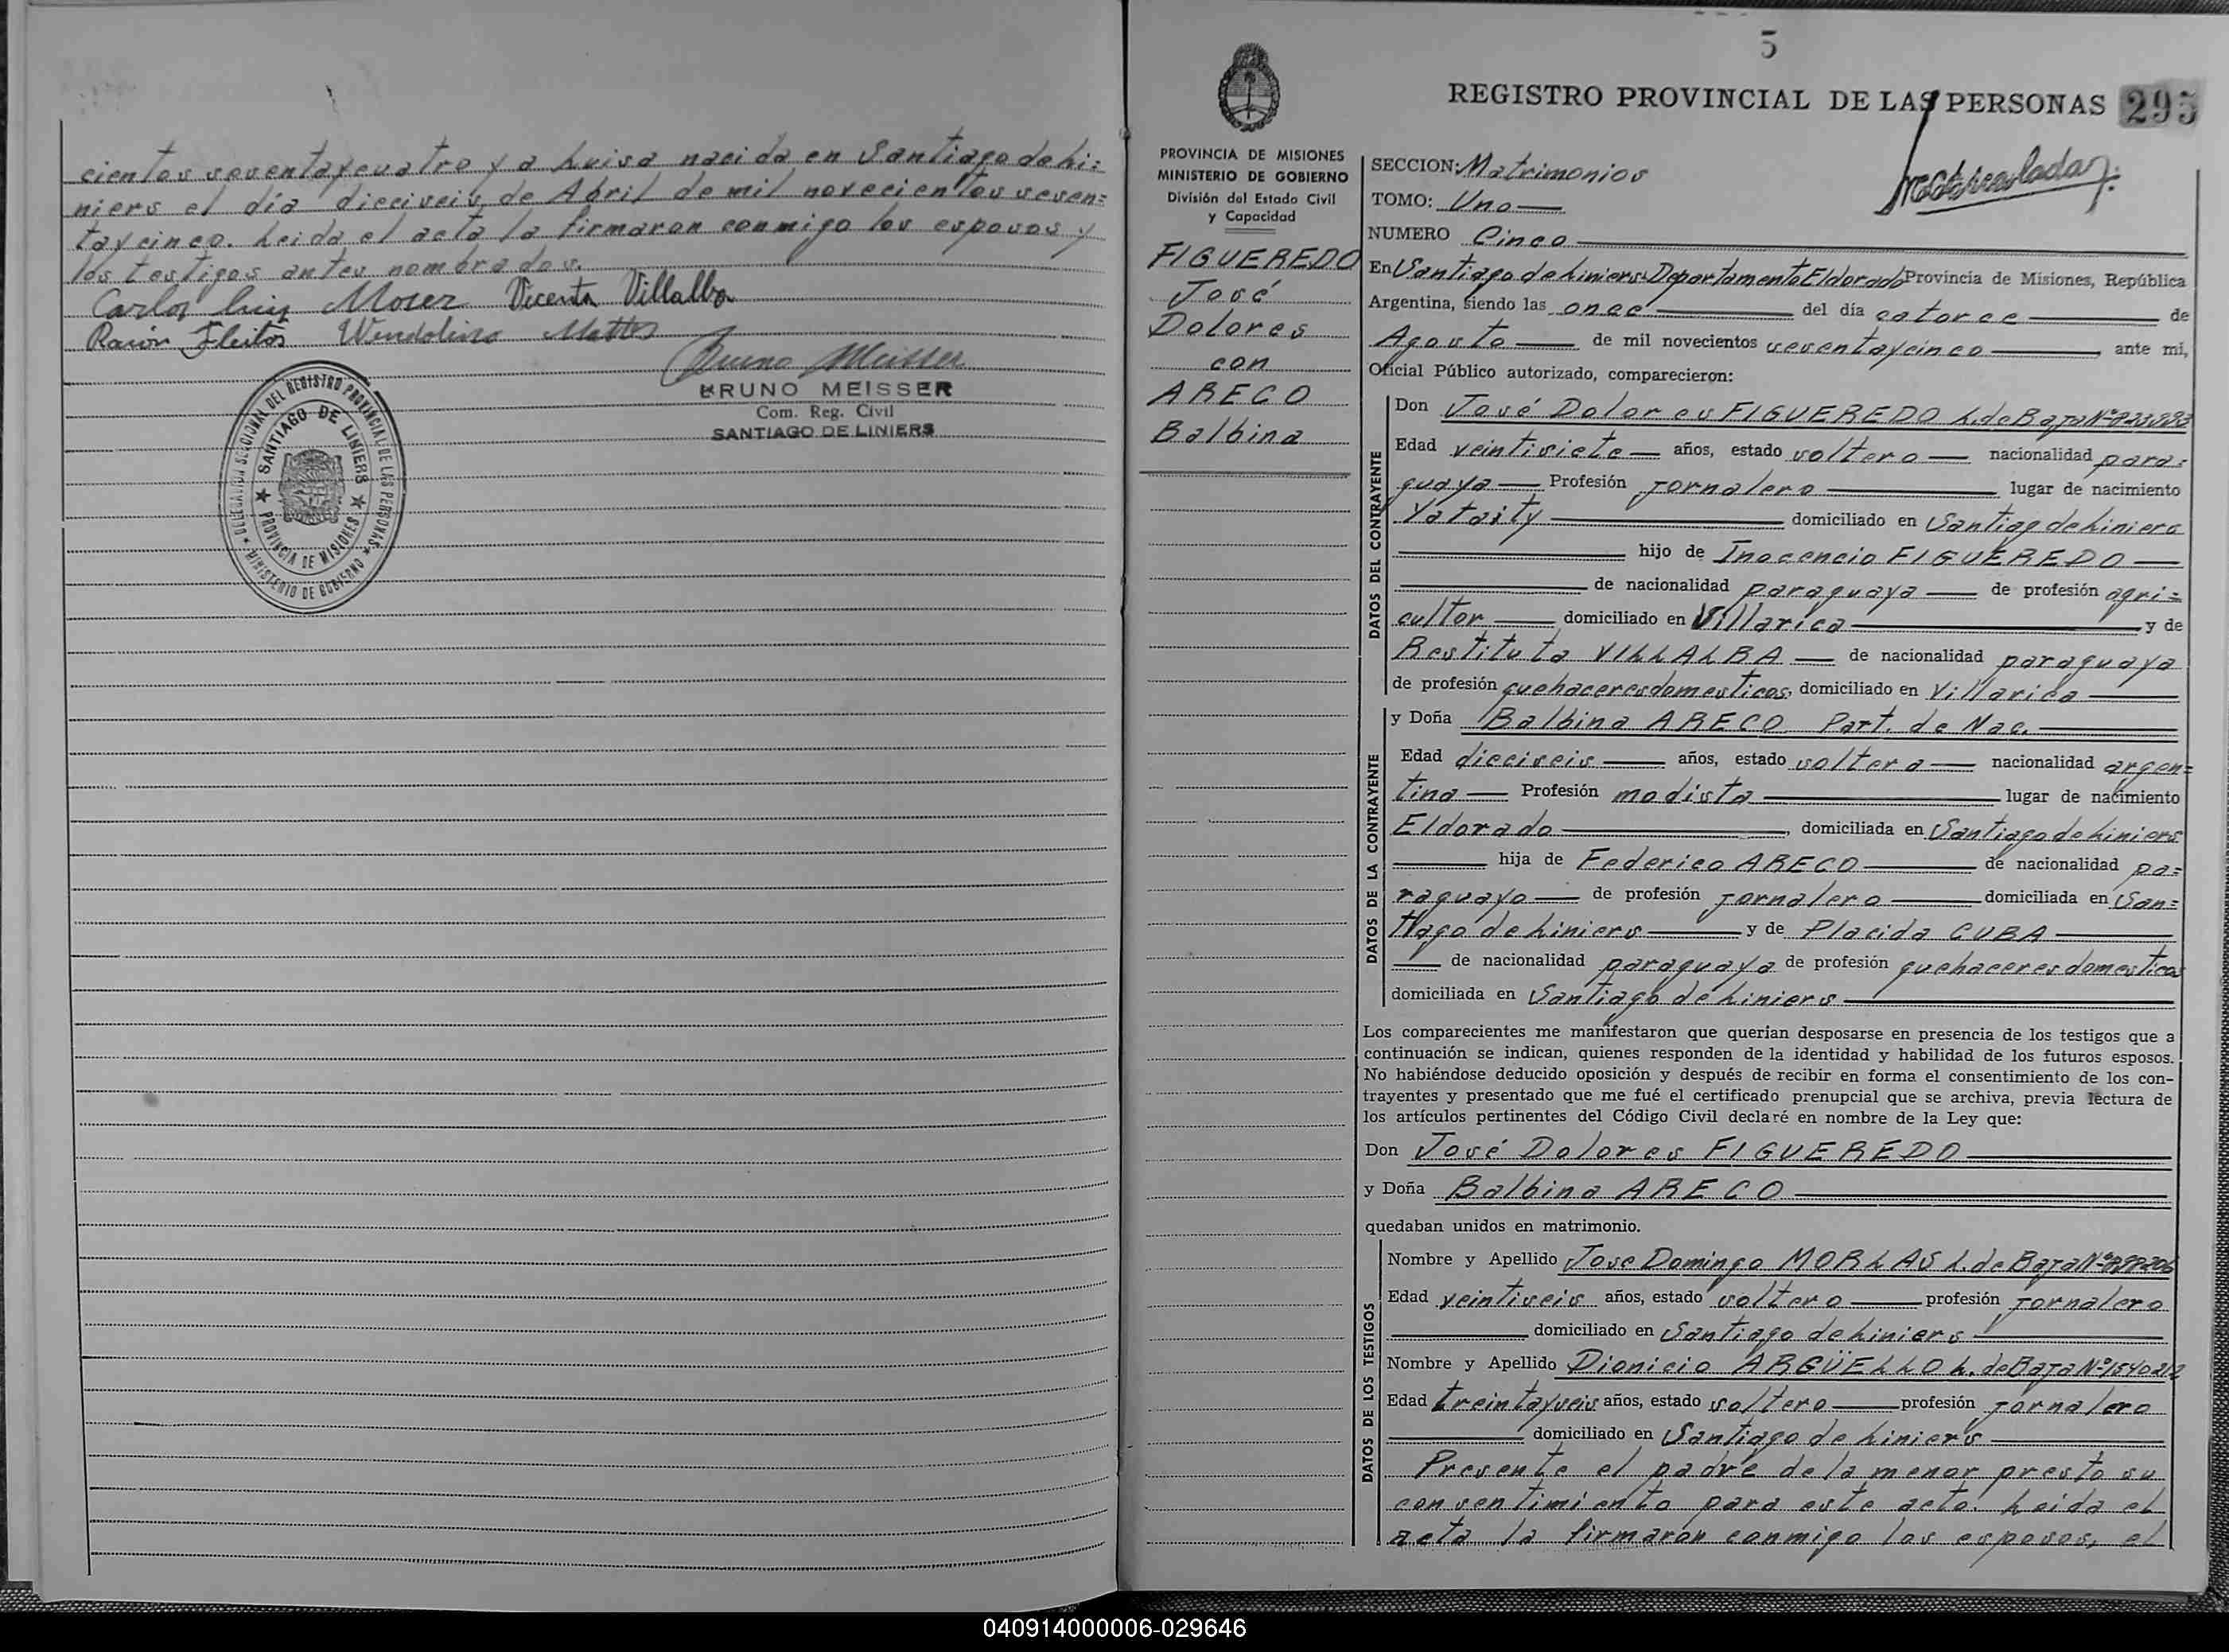 cientos sesentaycuatro y a Luisa nacida en Santiago de Li=
niers el día dieciseis de Abril de mil novecientos sesen=
taycinco. Leida el acta la firmaron conmigo los esposos y
los testigos antes nombrados.
Carlos Luis Moser Vicenta Villalba
Ramón Fleitas Wendolino Mattos
Bruno Meisser
BRUNO MEISSER
Com. Reg. Civil
SANTIAGO DE LINIERS
DELEGACION SECCIONAL DEL REGISTRO PROVINCIAL DE LAS PERSONAS
MINISTERIO DE GOBIERNO
SANTIAGO DE LINIERS
PROVINCIA DE MISIONES
5
REGISTRO PROVINCIAL DE LAS PERSONAS 295
PROVINCIA DE MISIONES
MINISTERIO DE GOBIERNO
División del Estado Civil
y Capacidad
FIGUEREDO
José
Dolores
con
ARECO
Balbina
SECCION: Matrimonios
TOMO: Uno
NUMERO Cinco
En Santiago de Liniers Departamento Eldorado Provincia de Misiones, República
Argentina, siendo las once del día catorce de
Agosto de mil novecientos sesentaycinco, ante mi,
Oficial Público autorizado, comparecieron:
DATOS DEL CONTRAYENTE
Don José Dolores FIGUEREDO L. de Baja Nº
Edad veintisiete años, estado soltero nacionalidad para=
guaya Profesión jornalero lugar de nacimiento
Yataity domiciliado en Santiag de Liniers
hijo de Inocencio FIGUEREDO
de nacionalidad paraguaya de profesión agri=
cultor domiciliado en Villarica y de
Restituta VILLALBA de nacionalidad paraguaya
de profesión quehaceres domesticos, domiciliado en Villarica
DATOS DE LA CONTRAYENTE
y Doña Balbina ARECO Part. de Nac.
Edad dieciseis años, estado soltera nacionalidad argen=
tina Profesión modista lugar de nacimiento
Eldorado, domiciliada en Santiago de Liniers
hija de Federico ARECO de nacionalidad pa=
raguayo de profesión jornalero domiciliada en San=
tiago de Liniers y de Placida CUBA
de nacionalidad paraguaya de profesión quehaceres domesticos
domiciliada en Santiago de Liniers
Los comparecientes me manifestaron que querían desposarse en presencia de los testigos que a
continuación se indican, quienes responden de la identidad y habilidad de los futuros esposos.
No habiéndose deducido oposición y después de recibir en forma el consentimiento de los con-
trayentes y presentado que me fué el certificado prenupcial que se archiva, previa lectura de
los artículos pertinentes del Código Civil declaré en nombre de la Ley que:
Don José Dolores FIGUEREDO
y Doña Balbina ARECO
quedaban unidos en matrimonio.
DATOS DE LOS TESTIGOS
Nombre y Apellido Jose Domingo MORLAS L. de Baja Nº
Edad veintiseis años, estado soltero profesión jornalero
domiciliado en Santiago de Liniers
Nombre y Apellido Dionicio ARGÜELLO L. de Baja Nº 1540212
Edad treintayseis años, estado soltero profesión jornalero
domiciliado en Santiago de Liniers
Presente el padre de la menor presto su
consentimiento para este acto. Leida el
acta la firmaron conmigo los esposos, el
040914000006-029646